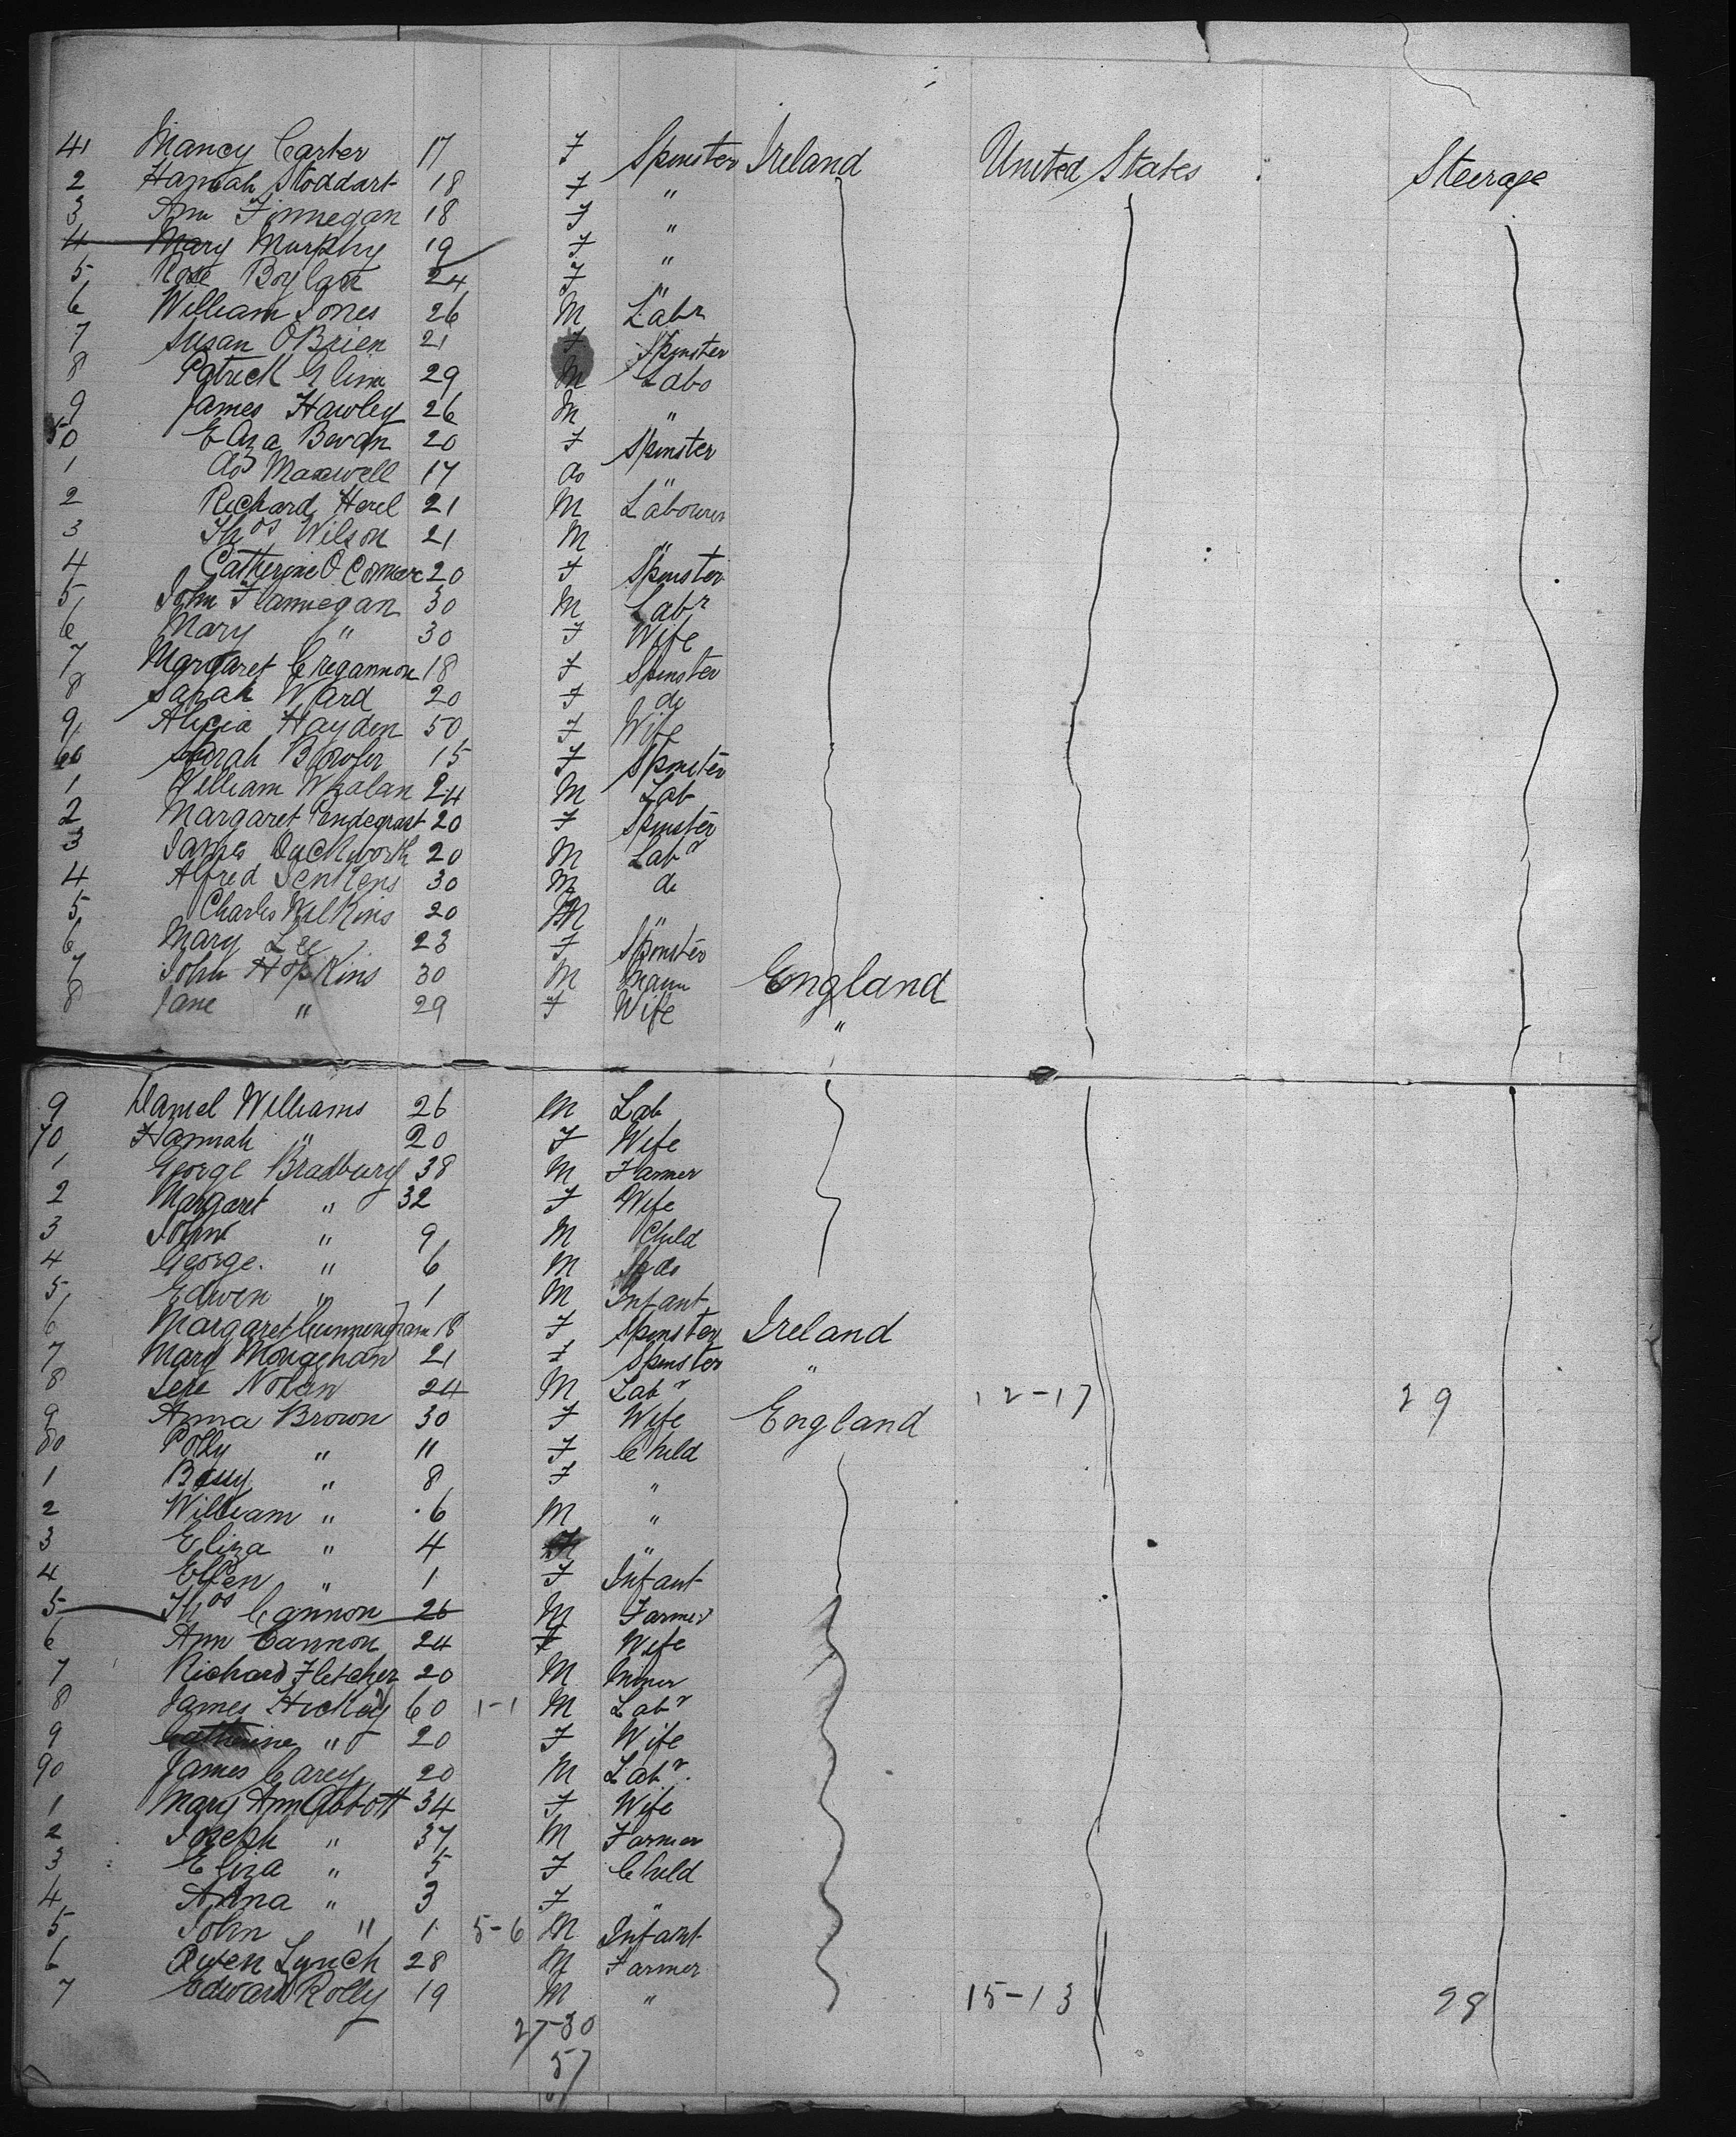 41 Nancy Carter 17 F Spinster Ireland United States Steerage
2 Hannah Stoddart 18 F "
3 Ann Finnegan 18 F "
4 Mary Murphy 19 F "
5 Rose Boylan 24 F "
6 William Jones 26 M Labr
7 Susan O'Brien 21 F Spinster
8 Patrick 29 M Labo
9 James Hawley 26 M "
50 Eliza Bevan 20 F Spinster
1 do Maxwell 17 do "
2 Richard 21 M Labourer
3 Thos Wilson 21 M "
4 Catherine O 20 F Spinster
5 John Flannegan 30 M Labr
6 Mary " 30 F Wife
7 Margaret Cregannon 18 F Spinster
8 Sarah Ward 20 F do
9 Alicia Hayden 50 F Wife
60 Sarah 15 F Spinster
1 William Whalan 24 M Lab
2 Margaret Pendegrast 20 F Spinster
3 James Duckworth 20 M Labr
4 Alfred Jenkens 30 M do
5 Charles Wilkins 20 M "
6 Mary Lee 23 F Spinster
7 John Hopkins 30 M England
8 Jane " 29 F Wife "
9 Daniel Williams 26 M Lab
70 Hannah " 20 F Wife
1 George Bradbury 38 M Farmer
2 Margaret " 32 F Wife
3 John " 9 M Child
4 George " 6 M do
5 Edwin " 1 M Infant
6 Margaret Cunningham 18 F Spinster Ireland
7 Mary Monaghan 21 F Spinster "
8 Nolan 24 M Labr 12-17 29
9 Anna Brown 30 F Wife England
80 Polly " 11 F Child
1 Bessy " 8 F "
2 William " 6 M "
3 Eliza " 4 "
4 Ellen " 1 F Infant
5 Thos Cannon 26 M Farmer
6 Ann Cannon 24 F Wife
7 Richard Fletcher 20 M Miner
8 James Hickey 60 1-1 M Labr
9 Catherine " 20 F Wife
90 James Carey 20 M Labr
1 Mary Ann Abbott 34 F Wife
2 Joseph " 37 M Farmer
3 Eliza " 5 F Child
4 Anna " 3 F "
5 John " 1 5-6 M Infant
6 Owen Lynch 28 M Farmer
7 Edward Rolly 19 M " 15-13 28
27-30
57